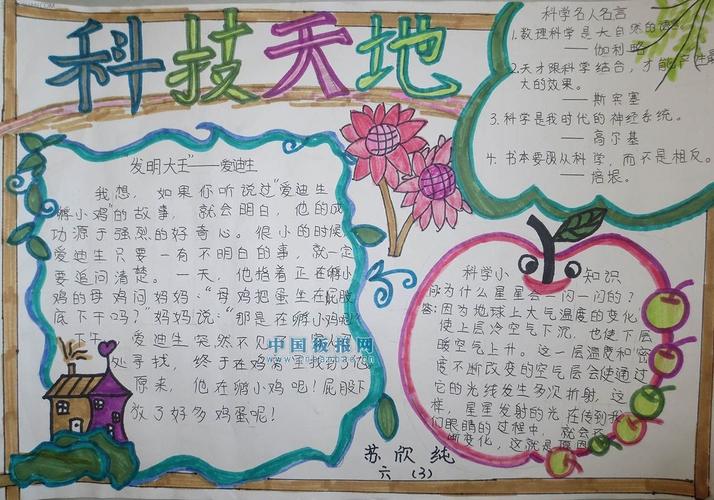 科技天地
发明大王"——爱迪生
我想，如果你听说过"爱迪生
孵小鸡"的故事，就会明白，他的成
功源于强烈的好奇心。很小的时候，
爱迪生只要一有不明白的事，就一定
要追问清楚。一天，他指着正在孵小
鸡的母鸡问妈妈："母鸡把蛋坐在屁股
底下干吗？"妈妈说："那是在孵小鸡呢！"
下午，爱迪生突然不见
处寻找，终于在鸡
原来，他在孵小鸡吧！屁股下
放了好多鸡蛋呢！
中国板报网
科学名人名言
1.数理科学是大自然的语
——伽利略
2.天才跟科学结合，才能产生最
大的效果。
——斯宾塞
3.科学是我时代的神经系统。
——高尔基
4.书本要服从科学，而不是相反。
——培根。
科学小知识
问为什么星星会一闪一闪的？
答：因为地球上大气温度的变化
使上层冷空气下沉，也使下层
暖空气上升。这一层温度和密
度不断改变的空气层会使通过
它的光线发生多次折射，这
样，星星发射的光在传到我
们眼睛的过程中，就会不
断变化，这就是原因
苏欣纯
六（3）